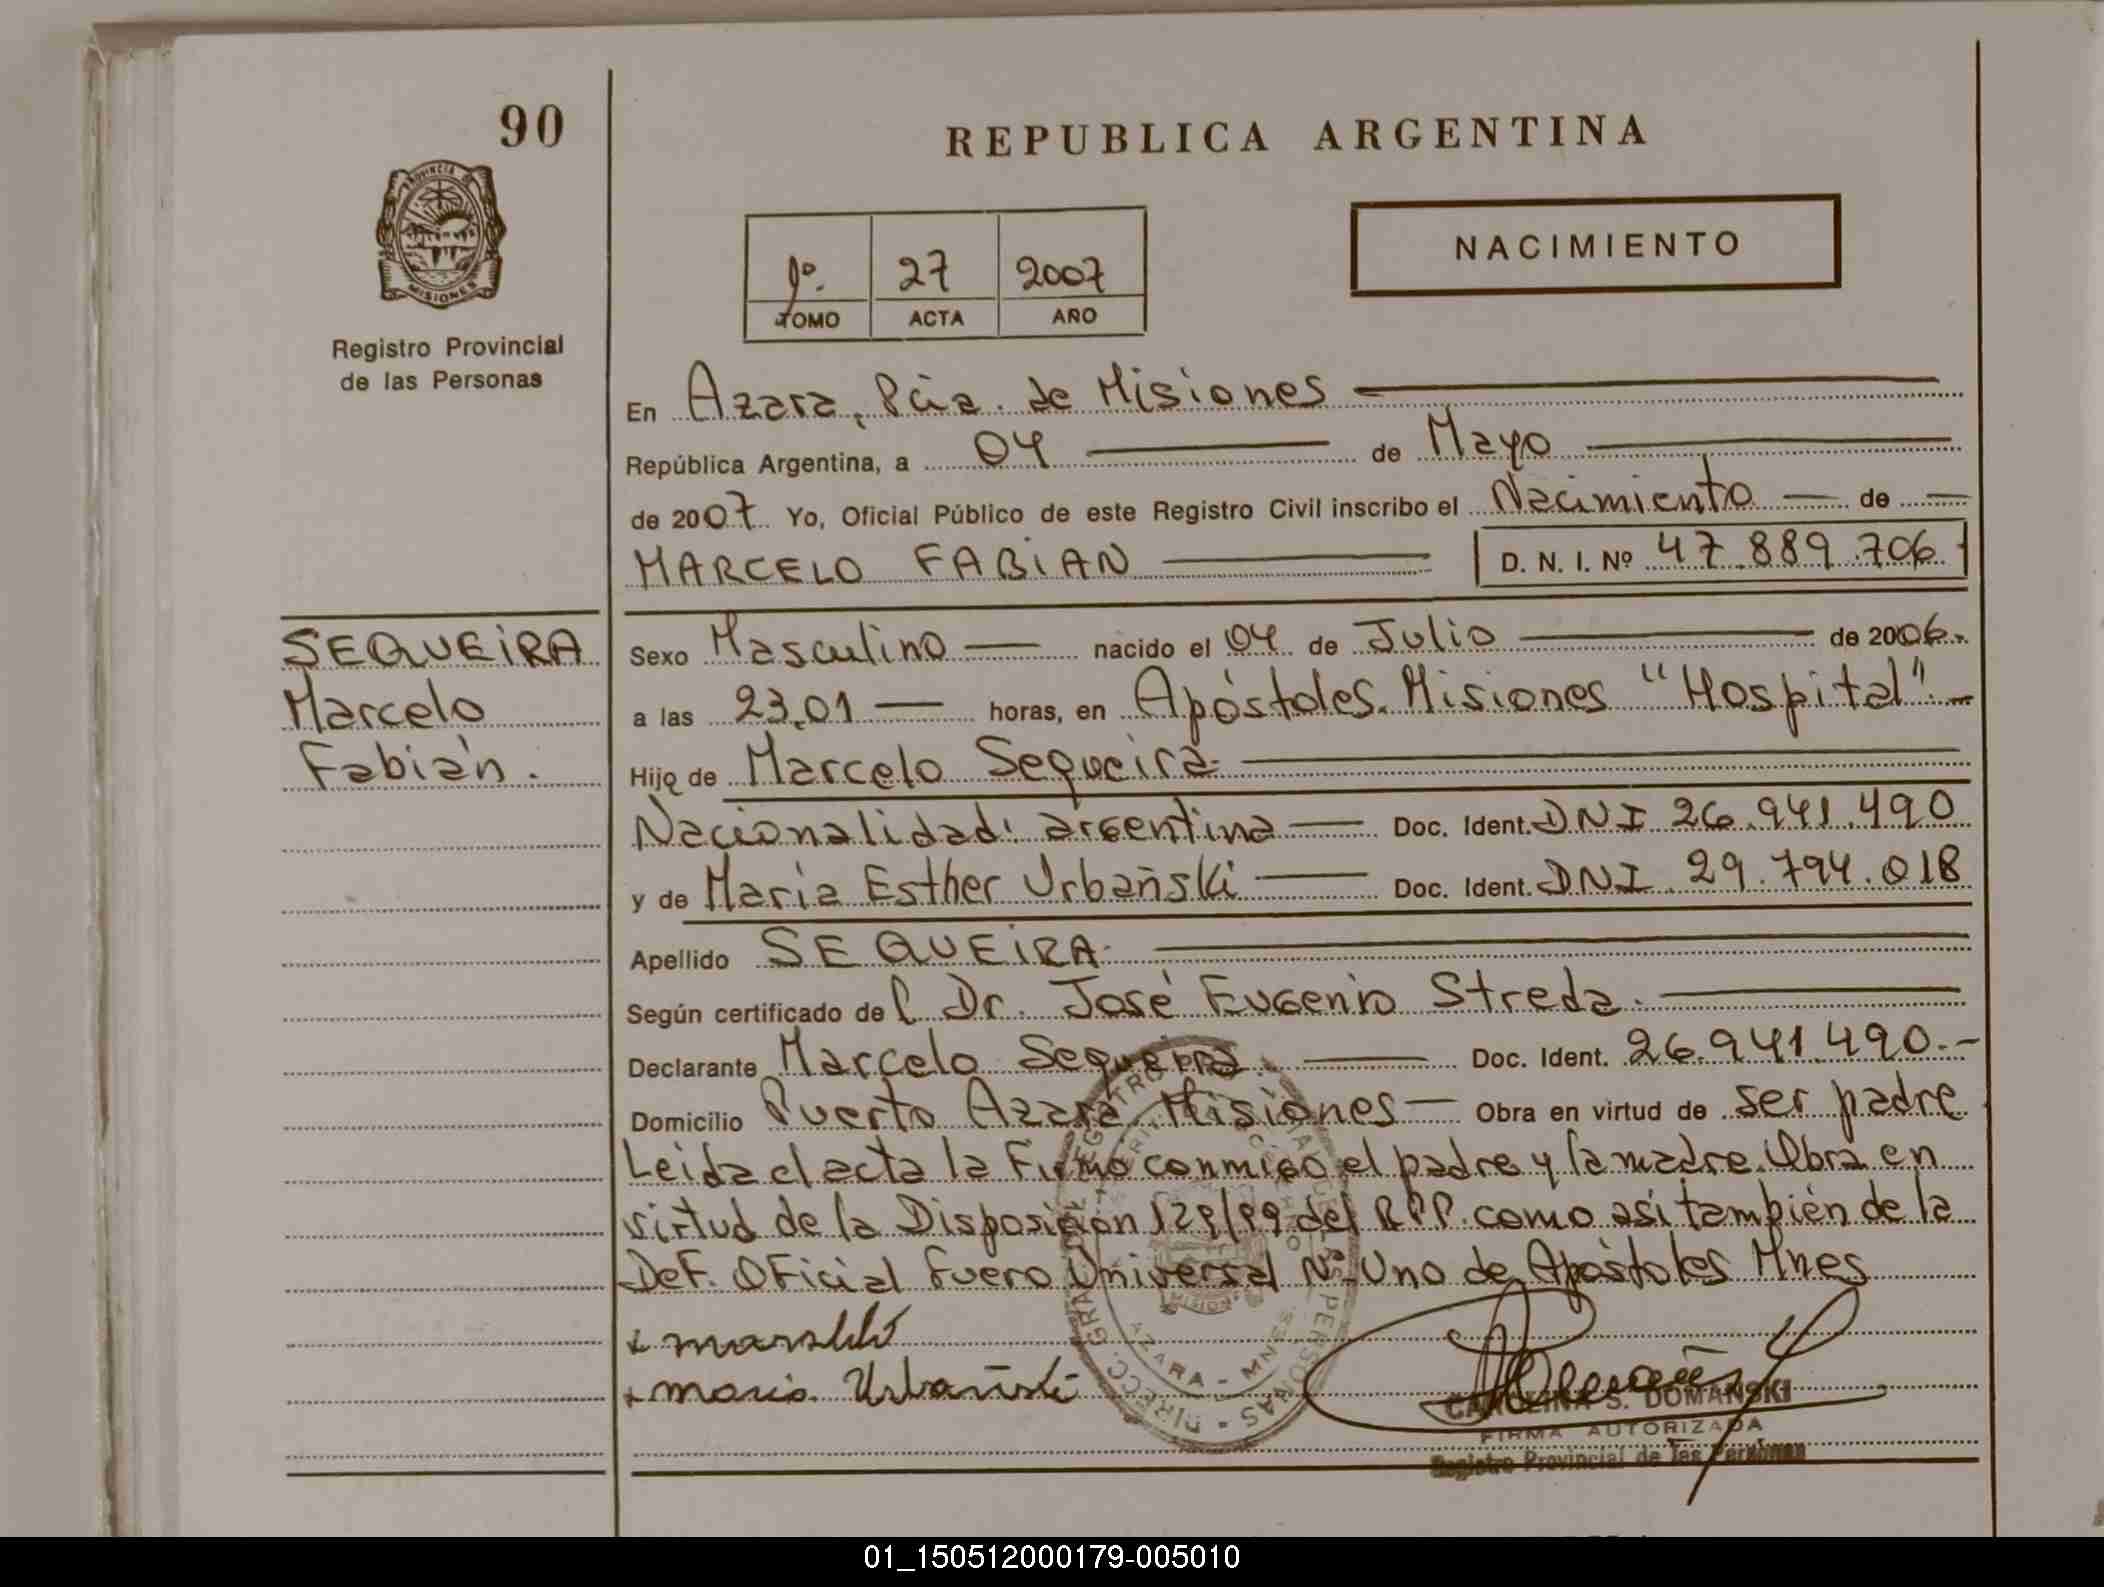 90
REPUBLICA ARGENTINA
PROVINCIA DE
MISIONES
Registro Provincial
de las Personas
1º. 27 2007
TOMO ACTA AÑO
NACIMIENTO
En Azara, Pcia. de Misiones
República Argentina, a 04 de Mayo
de 2007 Yo, Oficial Público de este Registro Civil inscribo el Nacimiento de
MARCELO FABIAN D. N. I. Nº 47.889.706
SEQUEIRA
Marcelo
Fabián.
Sexo Masculino nacido el 04 de Julio de 2006.
a las 23,01 horas, en Apóstoles. Misiones "Hospital"
Hijo de Marcelo Sequeira
Nacionalidad: argentina Doc. Ident. DNI 26.941.490
y de María Esther Urbañski Doc. Ident. DNI 29.794.018
Apellido SEQUEIRA
Según certificado del Dr. José Eugenio Streda.
Declarante Marcelo Sequeira. Doc. Ident. 26.941.490.-
Domicilio Puerto Azara Misiones Obra en virtud de ser padre
Leida el acta la Firmo conmigo el padre y la madre. Obra en
virtud de la Disposición 129/99 del RPP. como así también de la
Def. Oficial Fuero Universal Nº Uno de Apóstoles Mnes
maria Urbañski
AZARA - MNES.
MISIONES
CAROLINA S. DOMANSKI
FIRMA AUTORIZADA
Registro Provincial de las Personas
01_150512000179-005010